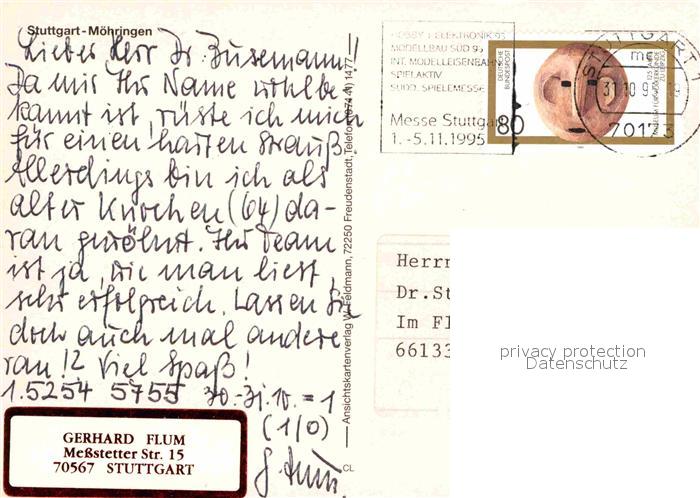 Stuttgart-Möhringen
Lieber Herr Dr. Busemann!
Da mir Ihr Name wohlbe-
kannt ist, rüste ich mich
für einen harten Strauß.
Allerdings bin ich als
alter Knochen (64) da-
ran gewöhnt. Ihr Team
ist ja, wie man liest,
sehr erfolgreich. Lassen Sie
doch auch mal andere
ran!? Viel Spaß!
1. 5254 5755 30.-31.10. = 1
(1/0)
G. Flum
GERHARD FLUM
Meßstetter Str. 15
70567 STUTTGART
Ansichtskartenverlag W. Feldmann, 72250 Freudenstadt, Telefon (07441) 1477
CL
HOBBY + ELEKTRONIK 95
MODELLBAU SÜD 95
INT. MODELLEISENBAHN
SPIELAKTIV
SÜDD. SPIELEMESSE
Messe Stuttgart
1.-5.11.1995
DEUTSCHE
BUNDESPOST
80
STUTTGART
31.10.9
70173
Herrn
Dr.St
Im Fl
66133
privacy protection
Datenschutz